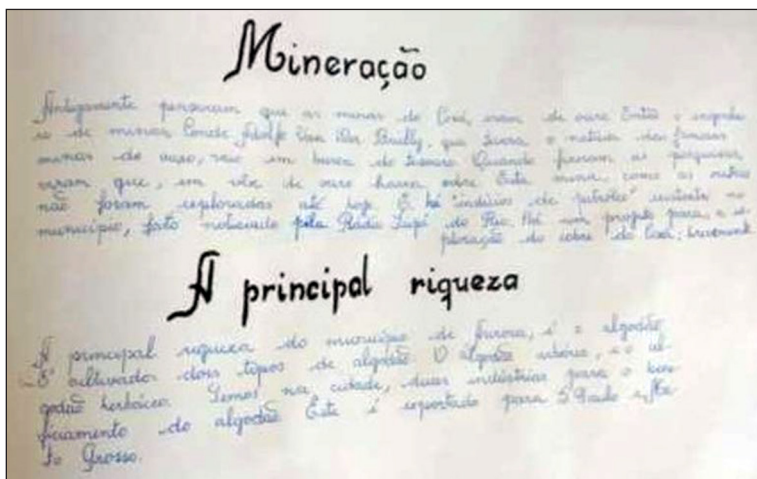 Mineração
Antigamente pensavam que as minas do Coxá, eram de ouro. Então o engenhei
ro de minas, Conde Adolfo Van Den Brully, que tivera a notícia das famosas
minas de ouro, veio em busca do tesouro. Quando fizeram as pesquisas,
viram que, em vêz de ouro havia cobre. Esta mina, como as outras
não foram exploradas até hoje. E há "indícios de petróleo" existente no
município, fato noticiado pela Rádio Tupí do Rio. Há um projeto para, a ex
ploração do cobre do Coxá, brevement
A principal riqueza
A principal riqueza do município de Aurora, é o algodão.
É cultivados dois tipos de algodão. O algodão arbóreo, e o al
godão herbáceo. Temos na cidade, duas indústrias para o bene
ficiamento do algodão. Este é exportado para S. Paulo e Ma
to Grosso.